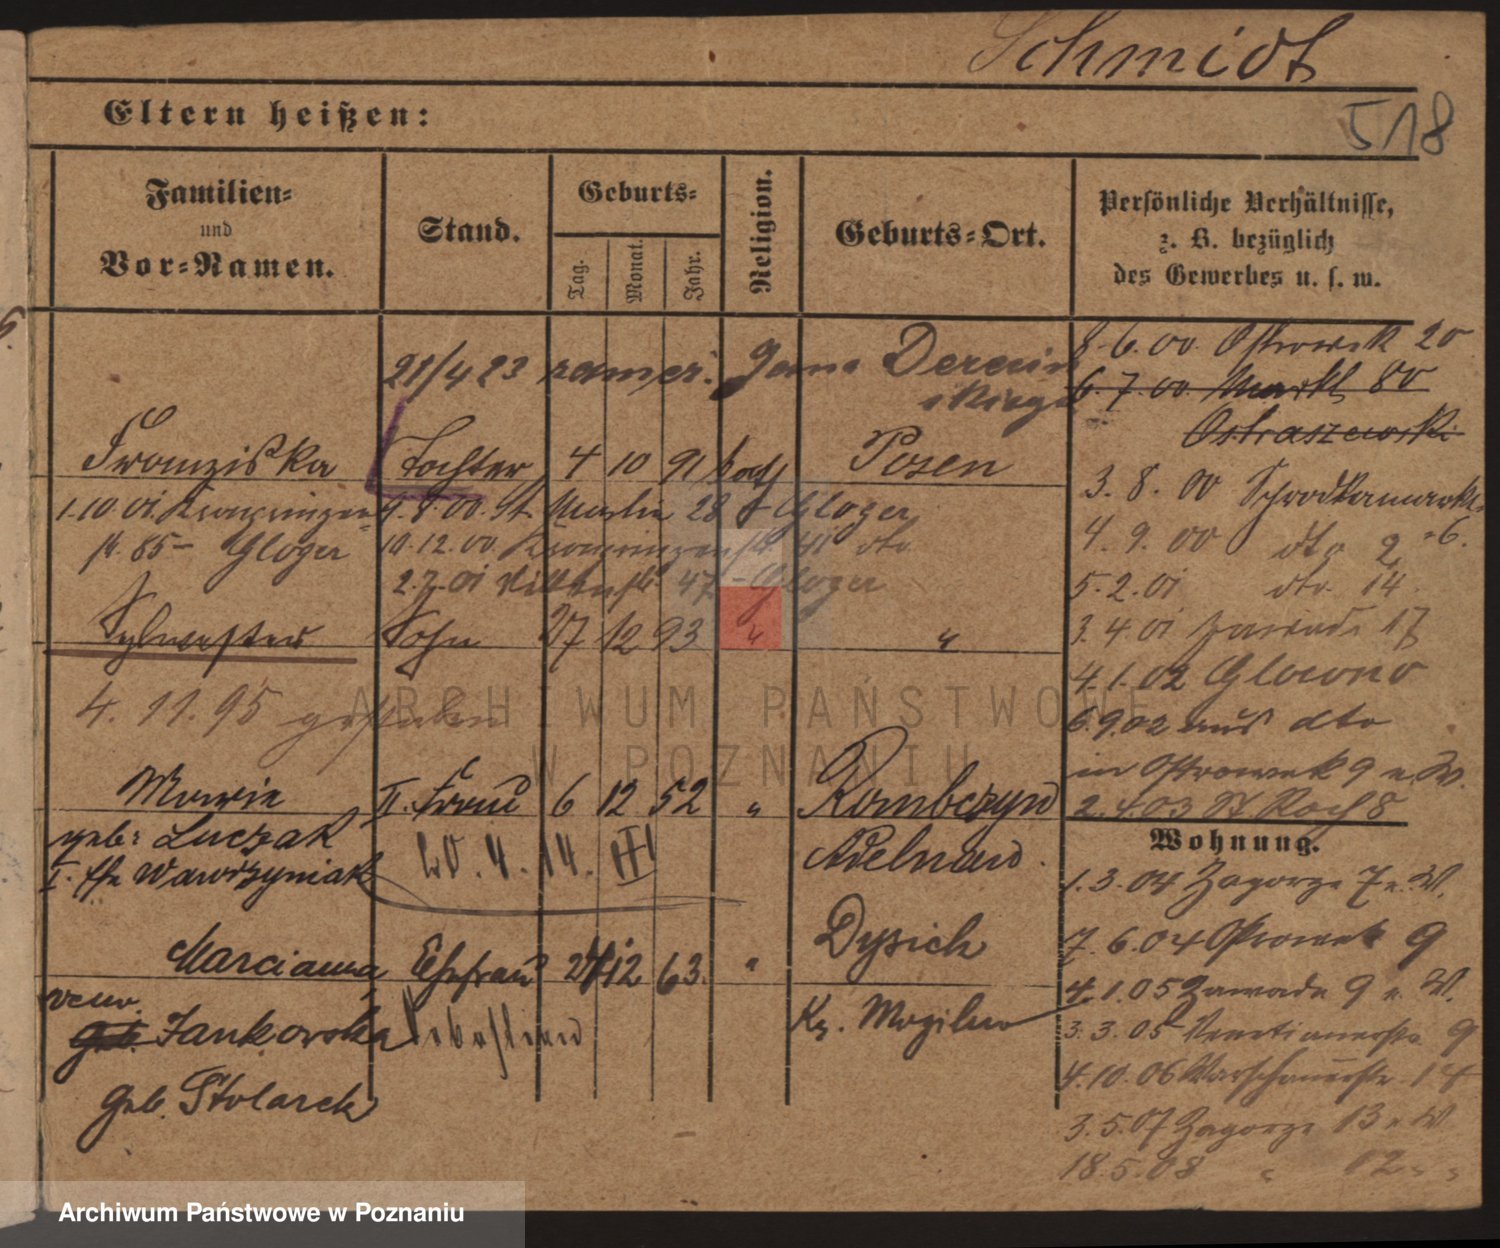 Schmidt
518
Eltern heißen:
Familien-
und
Vor-Namen.
Stand.
Geburts-
Tag.
Monat.
Jahr.
Religion.
Geburts-Ort.
Persönliche Verhältnisse,
z. B. bezüglich
des Gewerbes u. s. w.
21/4 23 Jana
8.6.00. Ostrowek 20
6.7.00. Markt 80
Ostraszewski
Franziska Tochter 4 10 91 kath Posen
3. 8. 00 Schrodkamarkt
1.10.01. Kronprinzen- 4.8.00. St. Martin 28 Gloger
4. 9. 00 dto 2 6.
st. 85 - Gloger 10.12.00 Kronprinzenst 41 dto
2.7.01 47 - Gloger
5.2.01 dto. 14.
Sylwester Sohn 27 12 93 " "
3.4.01 Zawade 17
4.1.02 Glowno
4. 11. 95 gestorben
6.9.02 aus dto
in Ostrowek 9 n. W.
Marie II. Frau 6 12 52 " Rombczyn
2.4.03 St Roch 8
geb: Luczak Adelnau.
I. Ehe Wawrzyniak 20. 4. 14. III
Wohnung.
1.3.04 Zagorze 7 n. W.
Marcianna Ehefrau 24 12 63. " Dysiek
7.6.04 Ostrowek 9
4.1.05 Zawade 9 n. W.
verw. geb. Jankowska Kr. Mogilno
3.3.05 Venetianerstr. 9
4.10.06 Warschauerstr. 14
geb. Stolarek
3.5.07 Zagorze 13 n W
18.5.08 " 12 " "
ARCHIWUM PAŃSTWOWE
W POZNANIU
Archiwum Państwowe w Poznaniu